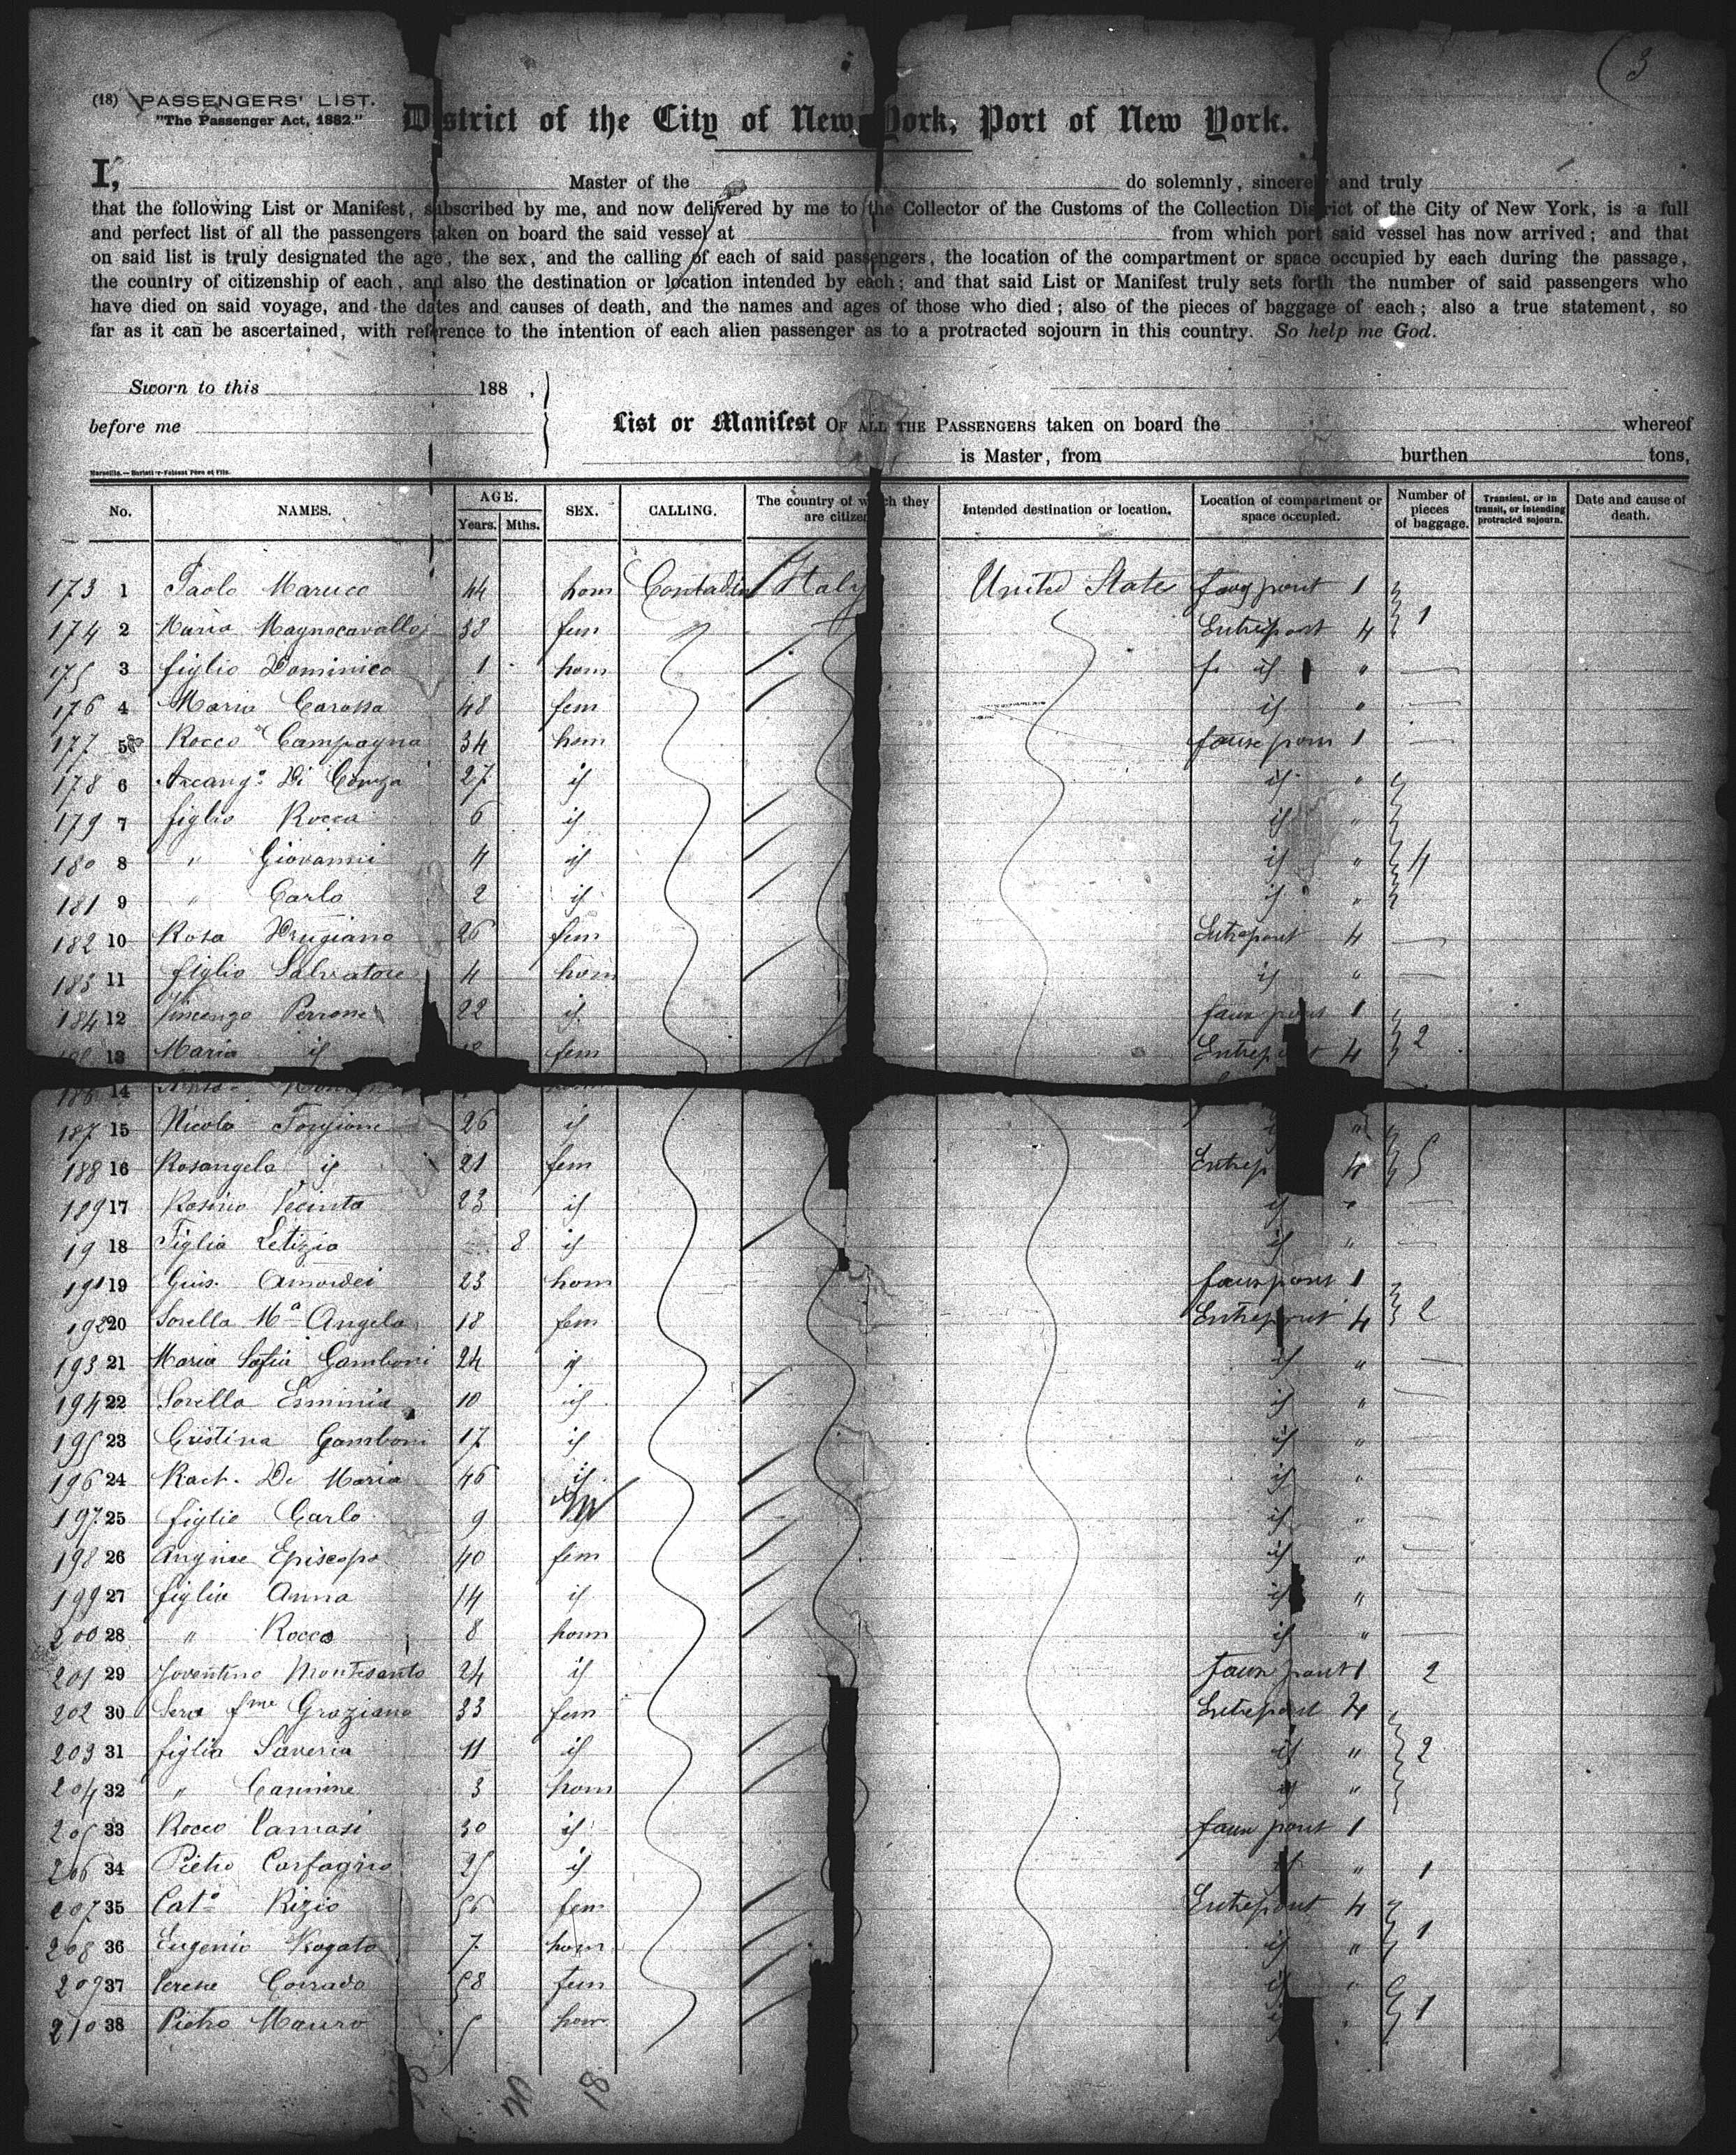 3
(18) PASSENGERS' LIST.
"The Passenger Act, 1882."
District of the City of New York, Port of New York.
I, Master of the do solemnly, sincerely and truly
that the following List or Manifest, subscribed by me, and now delivered by me to the Collector of the Customs of the Collection District of the City of New York, is a full
and perfect list of all the passengers taken on board the said vessel at from which port said vessel has now arrived; and that
on said list is truly designated the age, the sex, and the calling of each of said passengers, the location of the compartment or space occupied by each during the passage,
the country of citizenship of each, and also the destination or location intended by each; and that said List or Manifest truly sets forth the number of said passengers who
have died on said voyage, and the dates and causes of death, and the names and ages of those who died; also of the pieces of baggage of each; also a true statement, so
far as it can be ascertained, with reference to the intention of each alien passenger as to a protracted sojourn in this country. So help me God.
Sworn to this 188 ,
before me
List or Manifest OF ALL THE PASSENGERS taken on board the whereof
is Master, from burthen tons,
No. NAMES. AGE. Years. Mths. SEX. CALLING. The country of which they are citizens Intended destination or location. Location of compartment or space occupied. Number of pieces of baggage. Transient, or in transit, or intending protracted sojourn. Date and cause of death.
173 1 Paolo Maruco 44 hom Contadin Italy United State faux pont 1
174 2 Maria Magnocavallo 38 fem Entrepont 4 1
175 3 figlio Dominico 1 hom if "
176 4 Maria Carossa 48 fem if "
177 5 Rocco Campagna 34 hom faux pont 1
178 6 Arcang° Di Conza 27 if if "
179 7 figlio Rocco 6 if if "
180 8 " Giovanni 4 if if " 4
181 9 " Carlo 2 if if "
182 10 Rosa 26 fem Entrepont 4
183 11 figlio Salvatore 4 hom if "
184 12 Vincenzo Perrone 22 if faux pont 1
13 Maria if fem Entrepont 4 2
186 14
187 15 Nicola Forgione 26 if "
188 16 Rosangela if 21 fem Entrep 4 5
189 17 Rosina 23 if if "
19 18 Figlia Letizia 8 if if "
191 19 Gius. Amordei 23 hom faux pont 1
192 20 Sorella Mª Angela 18 fem Entrepont 4 2
193 21 Maria Sofia Gamboni 24 if if "
194 22 Sorella Erminia 10 if if "
195 23 Cristina Gamboni 17 if if "
196 24 Rach. De Maria 46 if if "
197 25 figlio Carlo 9 if "
198 26 Episcopo 40 fem if "
199 27 figlia Anna 14 if if "
200 28 " Rocco 8 hom if "
201 29 Montesanto 24 if faux pont 1 2
202 30 fme Graziano 33 fem Entrepont 4
203 31 figlia Saveria 11 if if " 2
204 32 " Carmine 3 hom if "
205 33 Rocco 30 if faux pont 1
206 34 Pietro Carfagno 25 if if " 1
207 35 Catª Rizio 56 fem Entrepont 4
208 36 Eugenio Rogato 7 hom if " 1
209 37 Corrado 58 fem if "
210 38 Pietro Mauro 5 hom 1
18